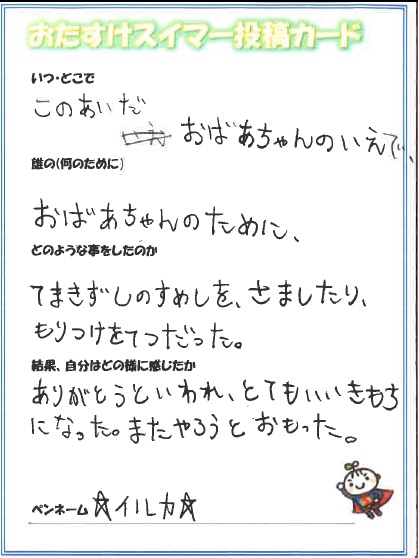 おたすけスイマー投稿カード
いつ・どこで
このあいだ
おばあちゃんのいえで、
誰の(何のために)
おばあちゃんのために、
どのような事をしたのか
てまきずしのすめしを、さましたり、
もりつけをてつだった。
結果、自分はどの様に感じたか
ありがとうといわれ、とてもいいきもち
になった。またやろうとおもった。
ペンネーム ☆イルカ☆